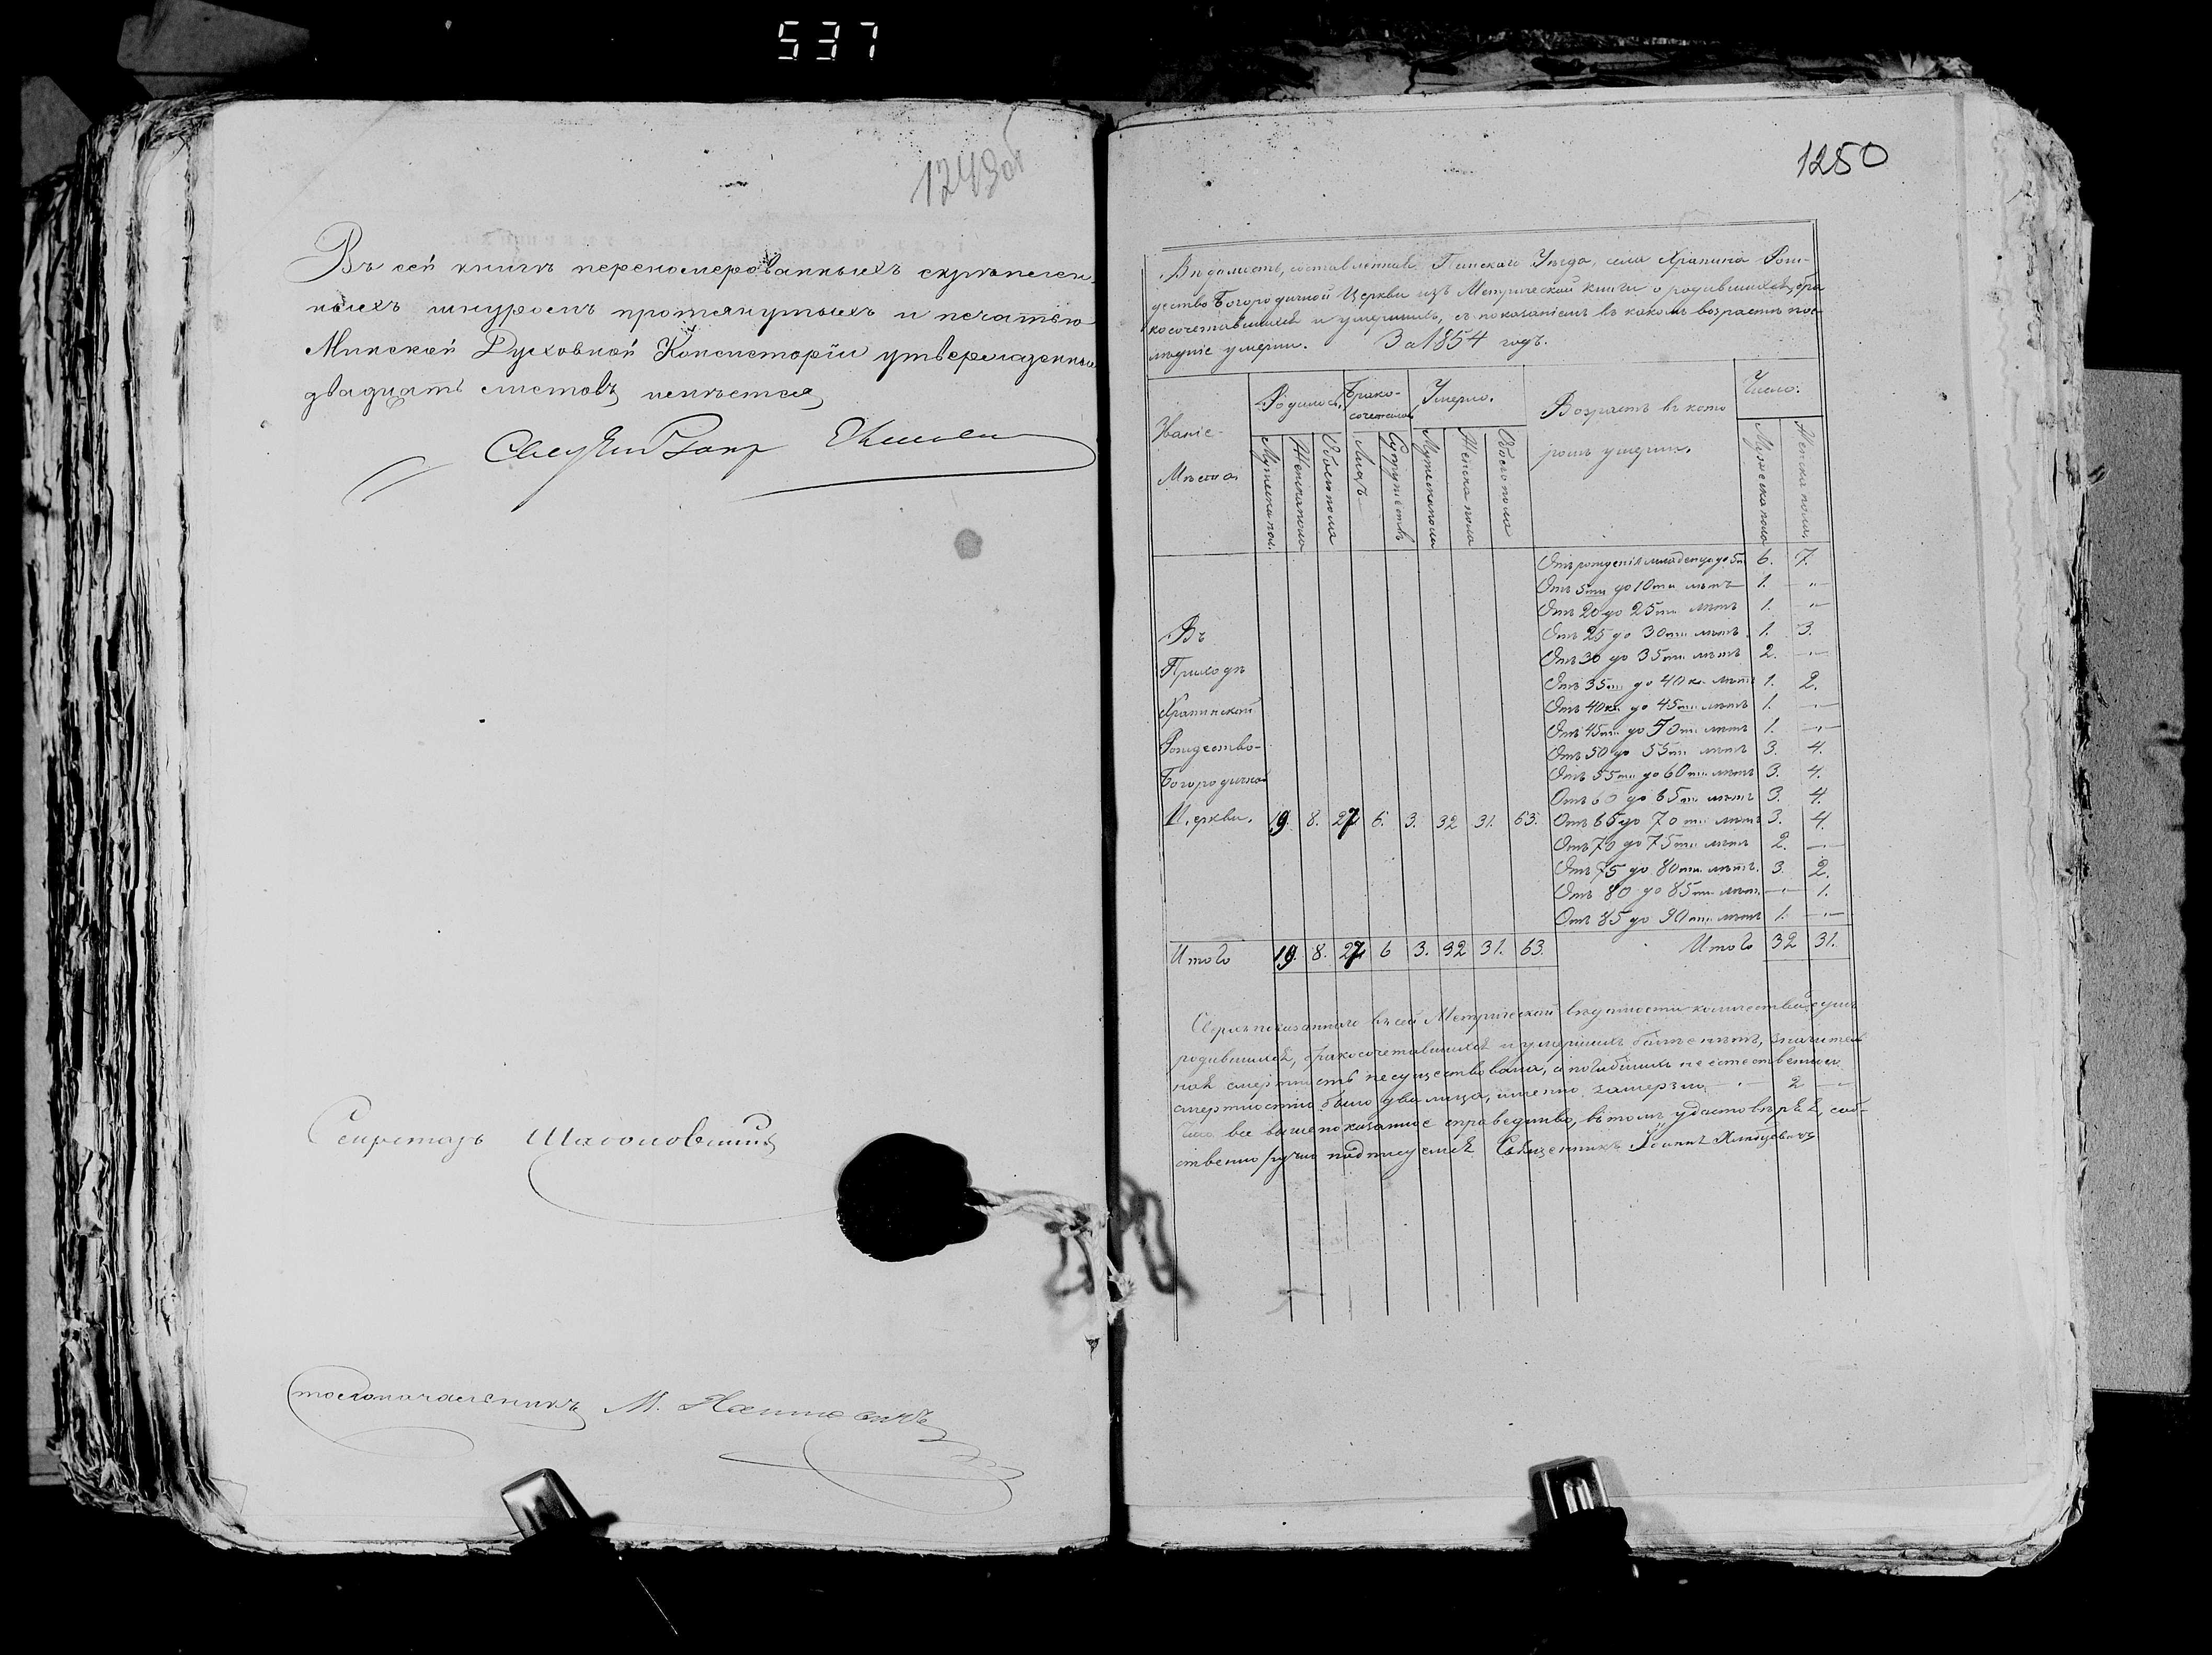 537
1243об
Въ сей книгѣ перенумерованныхъ скрѣплен-
ныхъ шнуромъ протянутыхъ и печатью
Минской Духовной Консисторіи утвержденны
двадцать листовъ имѣется
Секретарь
Столоначальникъ М.
1250
Вѣдомость, составленная Пинскаго Уѣзда, села Храпина Рож-
дество Богородичной Церкви изъ Метрической книги о родившихся, бра
косочетавшихся и умершихъ, съ показаніемъ въ какомъ возрастѣ пос-
лѣдніе умерли. За 1854 годъ.
Званіе Мѣста
Родилось. Брако-сочеталось Умерло. Возрастъ въ кото ромъ умерли. Число.
Мужеска пол. Женска пола Обоего пола Лицъ Супружествъ Мужеска пола Женска пола Обоего пола Мужеска пола Женска пола
Отъ рожденія младенца до 5ти 6. 7.
Отъ 5ти до 10ти лѣтъ 1. —„—
Отъ 20 до 25ти лѣтъ 1. —„—
Въ Отъ 25 до 30ти лѣтъ 1. 3.
Приходѣ Отъ 30 до 35ти лѣтъ 2. —„—
Отъ 35ти до 40ка лѣтъ 1. 2.
Храпинской Отъ 40ка до 45ти лѣтъ 1. —„—
Рождество- Отъ 45ти до 50ти лѣтъ 1. —„—
Отъ 50 до 55ти лѣтъ 3. 4.
Богородично Отъ 55ти до 60ти лѣтъ 3. 4.
Отъ 60 до 65ти лѣтъ 3. 4.
Церкви. 19. 8. 27 6. 3. 32 31. 63. Отъ 65 до 70ти лѣтъ 3. 4.
Отъ 70 до 75ти лѣтъ 2. —„—
Отъ 75 до 80ти лѣтъ. 3. 2.
Отъ 80 до 85ти лѣтъ. —„— 1.
Отъ 85 до 90ти лѣтъ 1. —„—
Итого 19. 8. 27 6 3. 32 31. 63. Итого 32 31.
Сверхъ показаннаго въ сей Метрической вѣдомости количества
родившихся, бракосочетавшихся и умершихъ болѣе нѣтъ, значитель
ная смертность не существовала, а погибшихъ не естественною
смертностію было два лица, именно замерзло —„— 2 —„—
Что все вышепоказанное справедливо, въ томъ удостовѣряя, соб-
ственноручно подписуемся Священникъ Іоаннъ